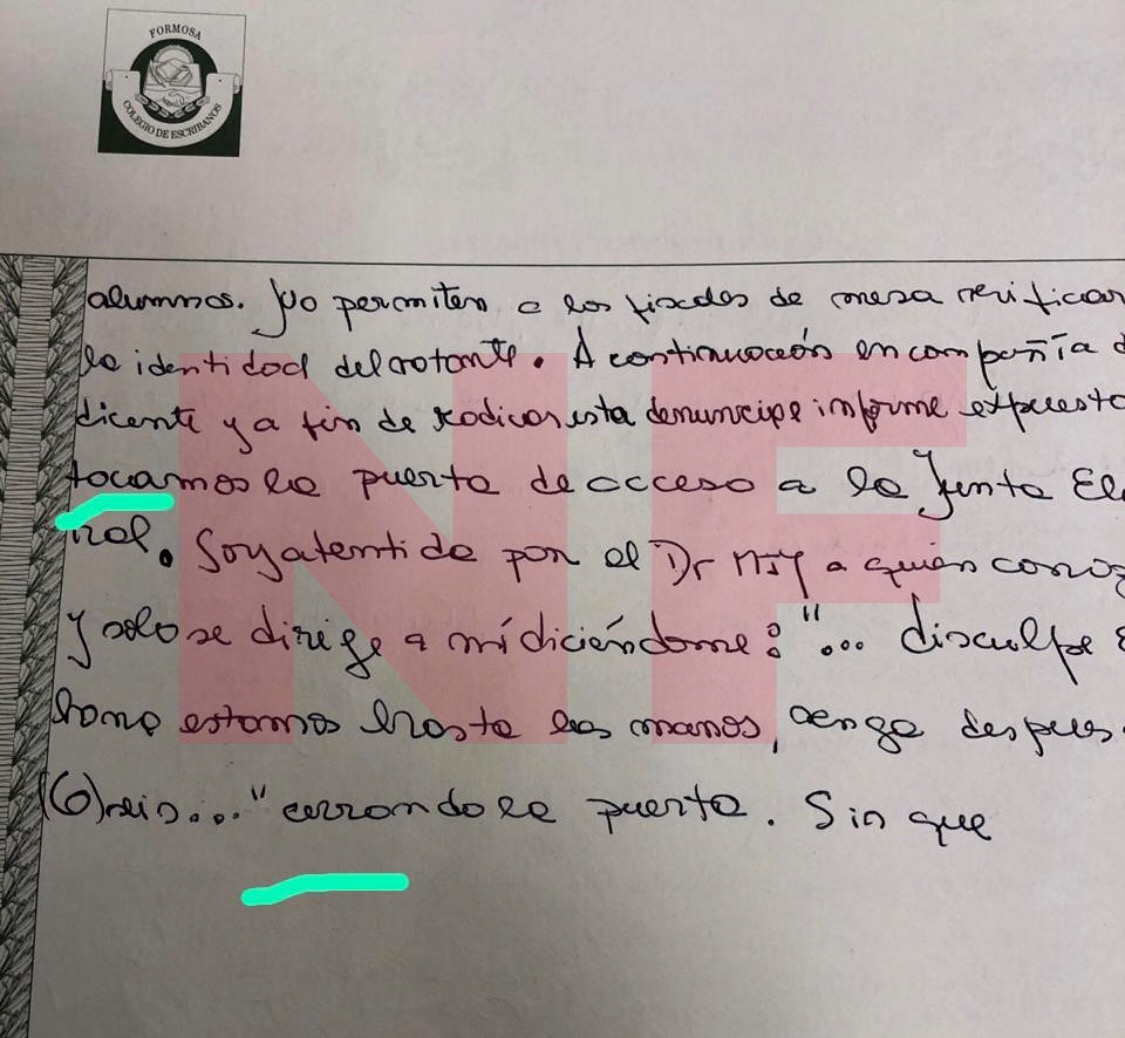 FORMOSA
COLEGIO DE ESCRIBANOS
alumnos. No permiten a los fiscales de mesa verificar
la identidad del votante. A continuación en compañía d
dicente y a fin de radicar esta denuncia e informe expuesto
tocamos la puerta de acceso a la Junta Ele
ral. Soy atentida por el Dr a quien conoz
y solo se dirige a mí diciéndome: "... disculpe e
bano estamos hasta las manos, venga despues
(6) seis..." cerrando la puerta. Sin que
NF